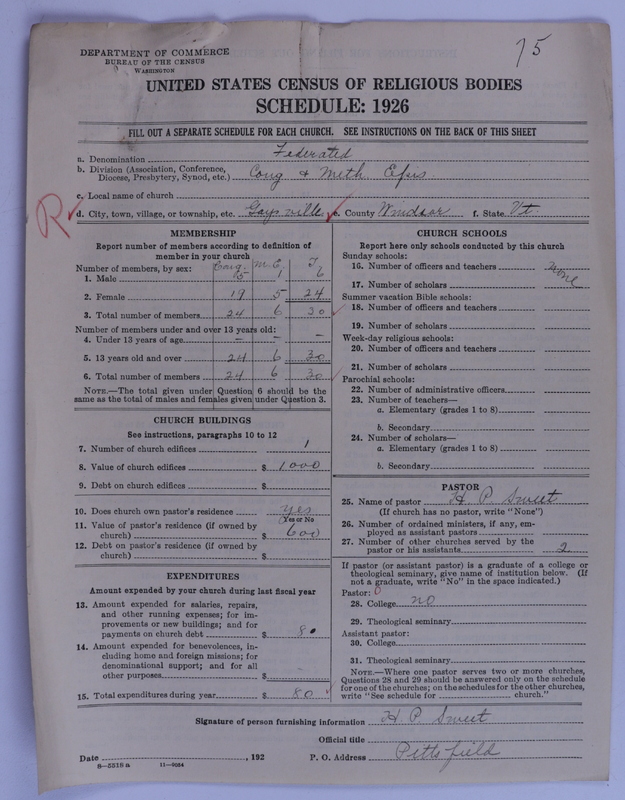 75
DEPARTMENT OF COMMERCE
BUREAU OF THE CENSUS
WASHINGTON
UNITED STATES CENSUS OF RELIGIOUS BODIES
SCHEDULE: 1926
FILL OUT A SEPARATE SCHEDULE FOR EACH CHURCH. SEE INSTRUCTIONS ON THE BACK OF THIS SHEET
a. Denomination Federated
b. Division (Association, Conference, Diocese, Presbytery, Synod, etc.) Cong & Meth Epis.
c. Local name of church
R
d. City, town, village, or township, etc. Gaysville e. County Windsor f. State Vt.
MEMBERSHIP
Report number of members according to definition of
member in your church
Cong. M.E. T
Number of members, by sex:
1. Male 5 1 6
2. Female 19 5 24
3. Total number of members 24 6 30
Number of members under and over 13 years old:
4. Under 13 years of age – – –
5. 13 years old and over 24 6 30
6. Total number of members 24 6 30
NOTE.—The total given under Question 6 should be the
same as the total of males and females given under Question 3.
CHURCH BUILDINGS
See instructions, paragraphs 10 to 12
7. Number of church edifices 1
8. Value of church edifices $ 1000
9. Debt on church edifices $
10. Does church own pastor's residence yes
(Yes or No)
11. Value of pastor's residence (if owned by
church) $ 600
12. Debt on pastor's residence (if owned by
church) $
EXPENDITURES
Amount expended by your church during last fiscal year
13. Amount expended for salaries, repairs,
and other running expenses; for im-
provements or new buildings; and for
payments on church debt $ 80
14. Amount expended for benevolences, in-
cluding home and foreign missions; for
denominational support; and for all
other purposes $ –
15. Total expenditures during year $ 80
CHURCH SCHOOLS
Report here only schools conducted by this church
Sunday schools:
16. Number of officers and teachers none
17. Number of scholars
Summer vacation Bible schools:
18. Number of officers and teachers
19. Number of scholars
Week-day religious schools:
20. Number of officers and teachers
21. Number of scholars
Parochial schools:
22. Number of administrative officers
23. Number of teachers—
a. Elementary (grades 1 to 8)
b. Secondary
24. Number of scholars—
a. Elementary (grades 1 to 8)
b. Secondary
PASTOR
25. Name of pastor H. P. Sweet
(If church has no pastor, write "None")
26. Number of ordained ministers, if any, em-
ployed as assistant pastors
27. Number of other churches served by the
pastor or his assistants 2
If pastor (or assistant pastor) is a graduate of a college or
theological seminary, give name of institution below. (If
not a graduate, write "No" in the space indicated.)
Pastor: 0
28. College no
29. Theological seminary
Assistant pastor:
30. College
31. Theological seminary
NOTE.—Where one pastor serves two or more churches,
Questions 28 and 29 should be answered only on the schedule
for one of the churches; on the schedules for the other churches,
write "See schedule for church."
Signature of person furnishing information H P Sweet
Official title
Date , 192 P. O. Address Pittsfield
8—5518 a 11—9054